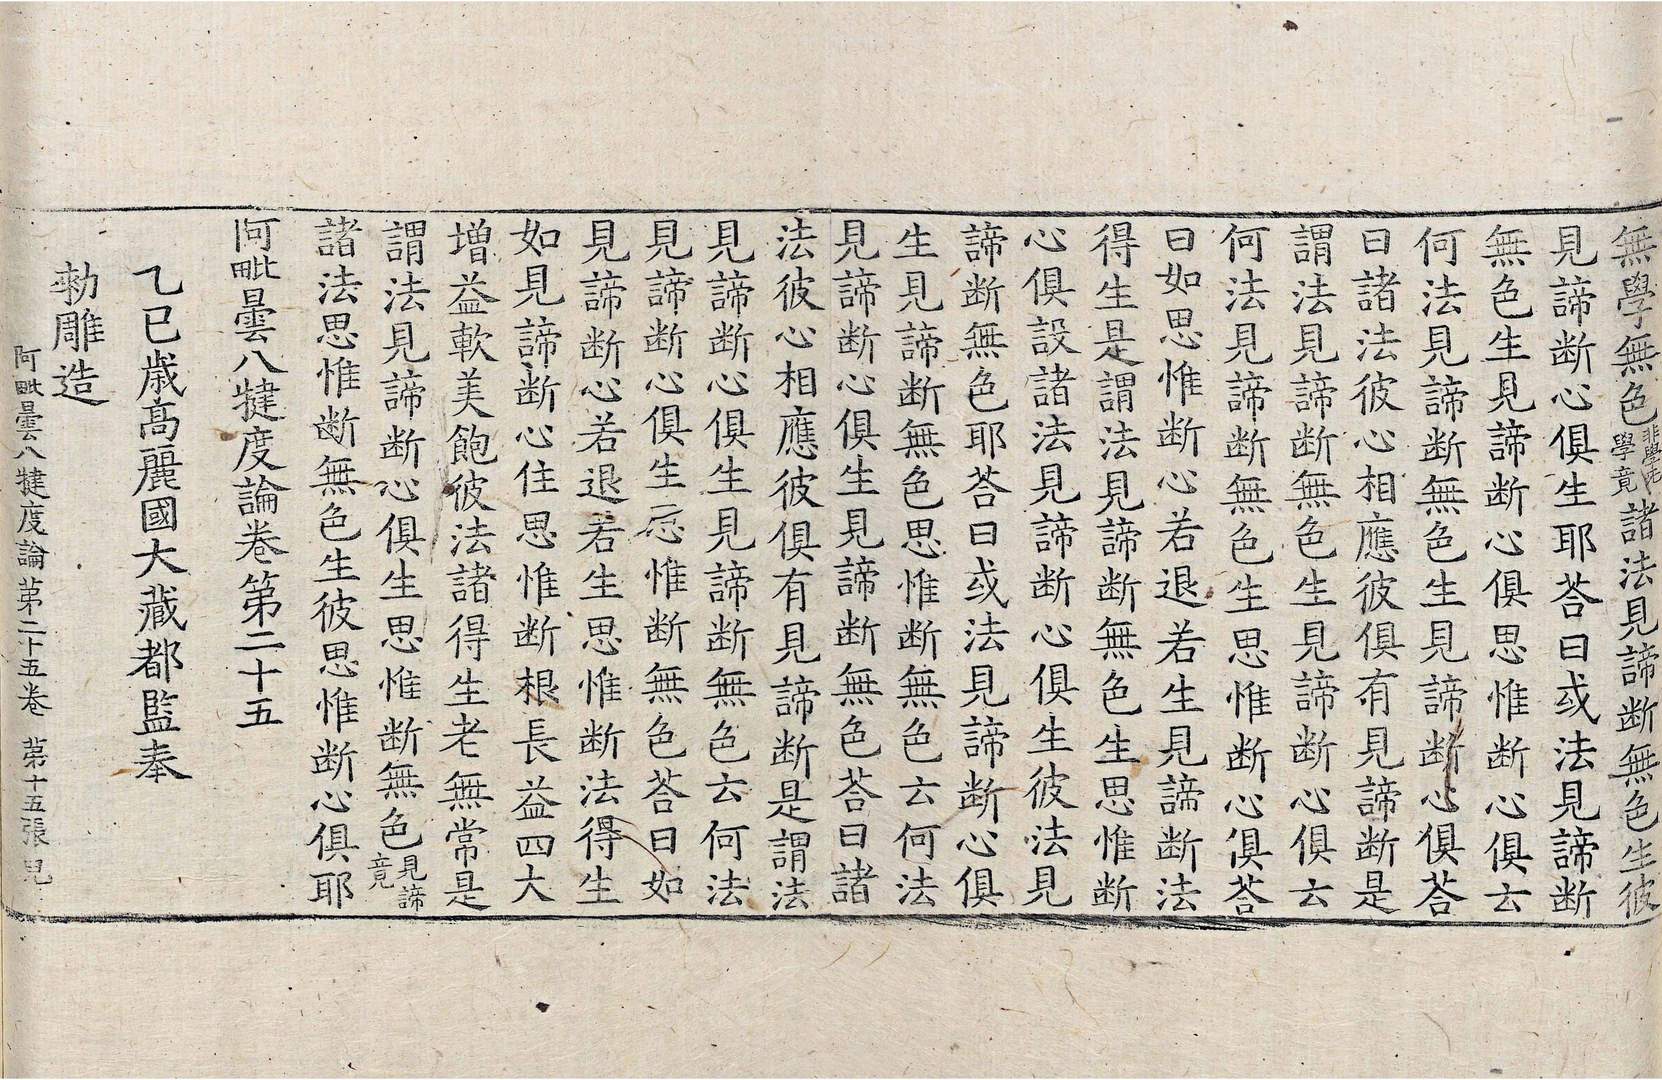 無學無色非學无學竟諸法見諦断無色生彼
見諦断心俱生耶荅曰或法見諦断
無色生見諦断心俱思惟断心俱云
何法見諦断無色生見諦断心俱荅
曰諸法彼心相應彼俱有見諦断是
謂法見諦断無色生見諦断心俱云
何法見諦断無色生思惟断心俱荅
曰如思惟断心若退若生見諦断法
得生是謂法見諦断無色生思惟断
心俱設諸法見諦断心俱生彼法見
諦断無色耶荅曰或法見諦断心俱
生見諦断無色思惟断無色云何法
見諦断心俱生見諦断無色荅曰諸
法彼心相應彼俱有見諦断是謂法
見諦断心俱生見諦断無色云何法
見諦断心俱生思惟断無色荅曰如
見諦断心若退若生思惟断法得生
如見諦断心住思惟断根長益四大
增益軟美飽彼法諸得生老無常是
謂法見諦断心俱生思惟断無色見諦竟
諸法思惟断無色生彼思惟断心俱耶
阿毗曇八犍度論卷第二十五
乙巳歳高麗國大藏都監奉
勑雕造
阿毗曇八犍度論苐二十五卷 苐十五張